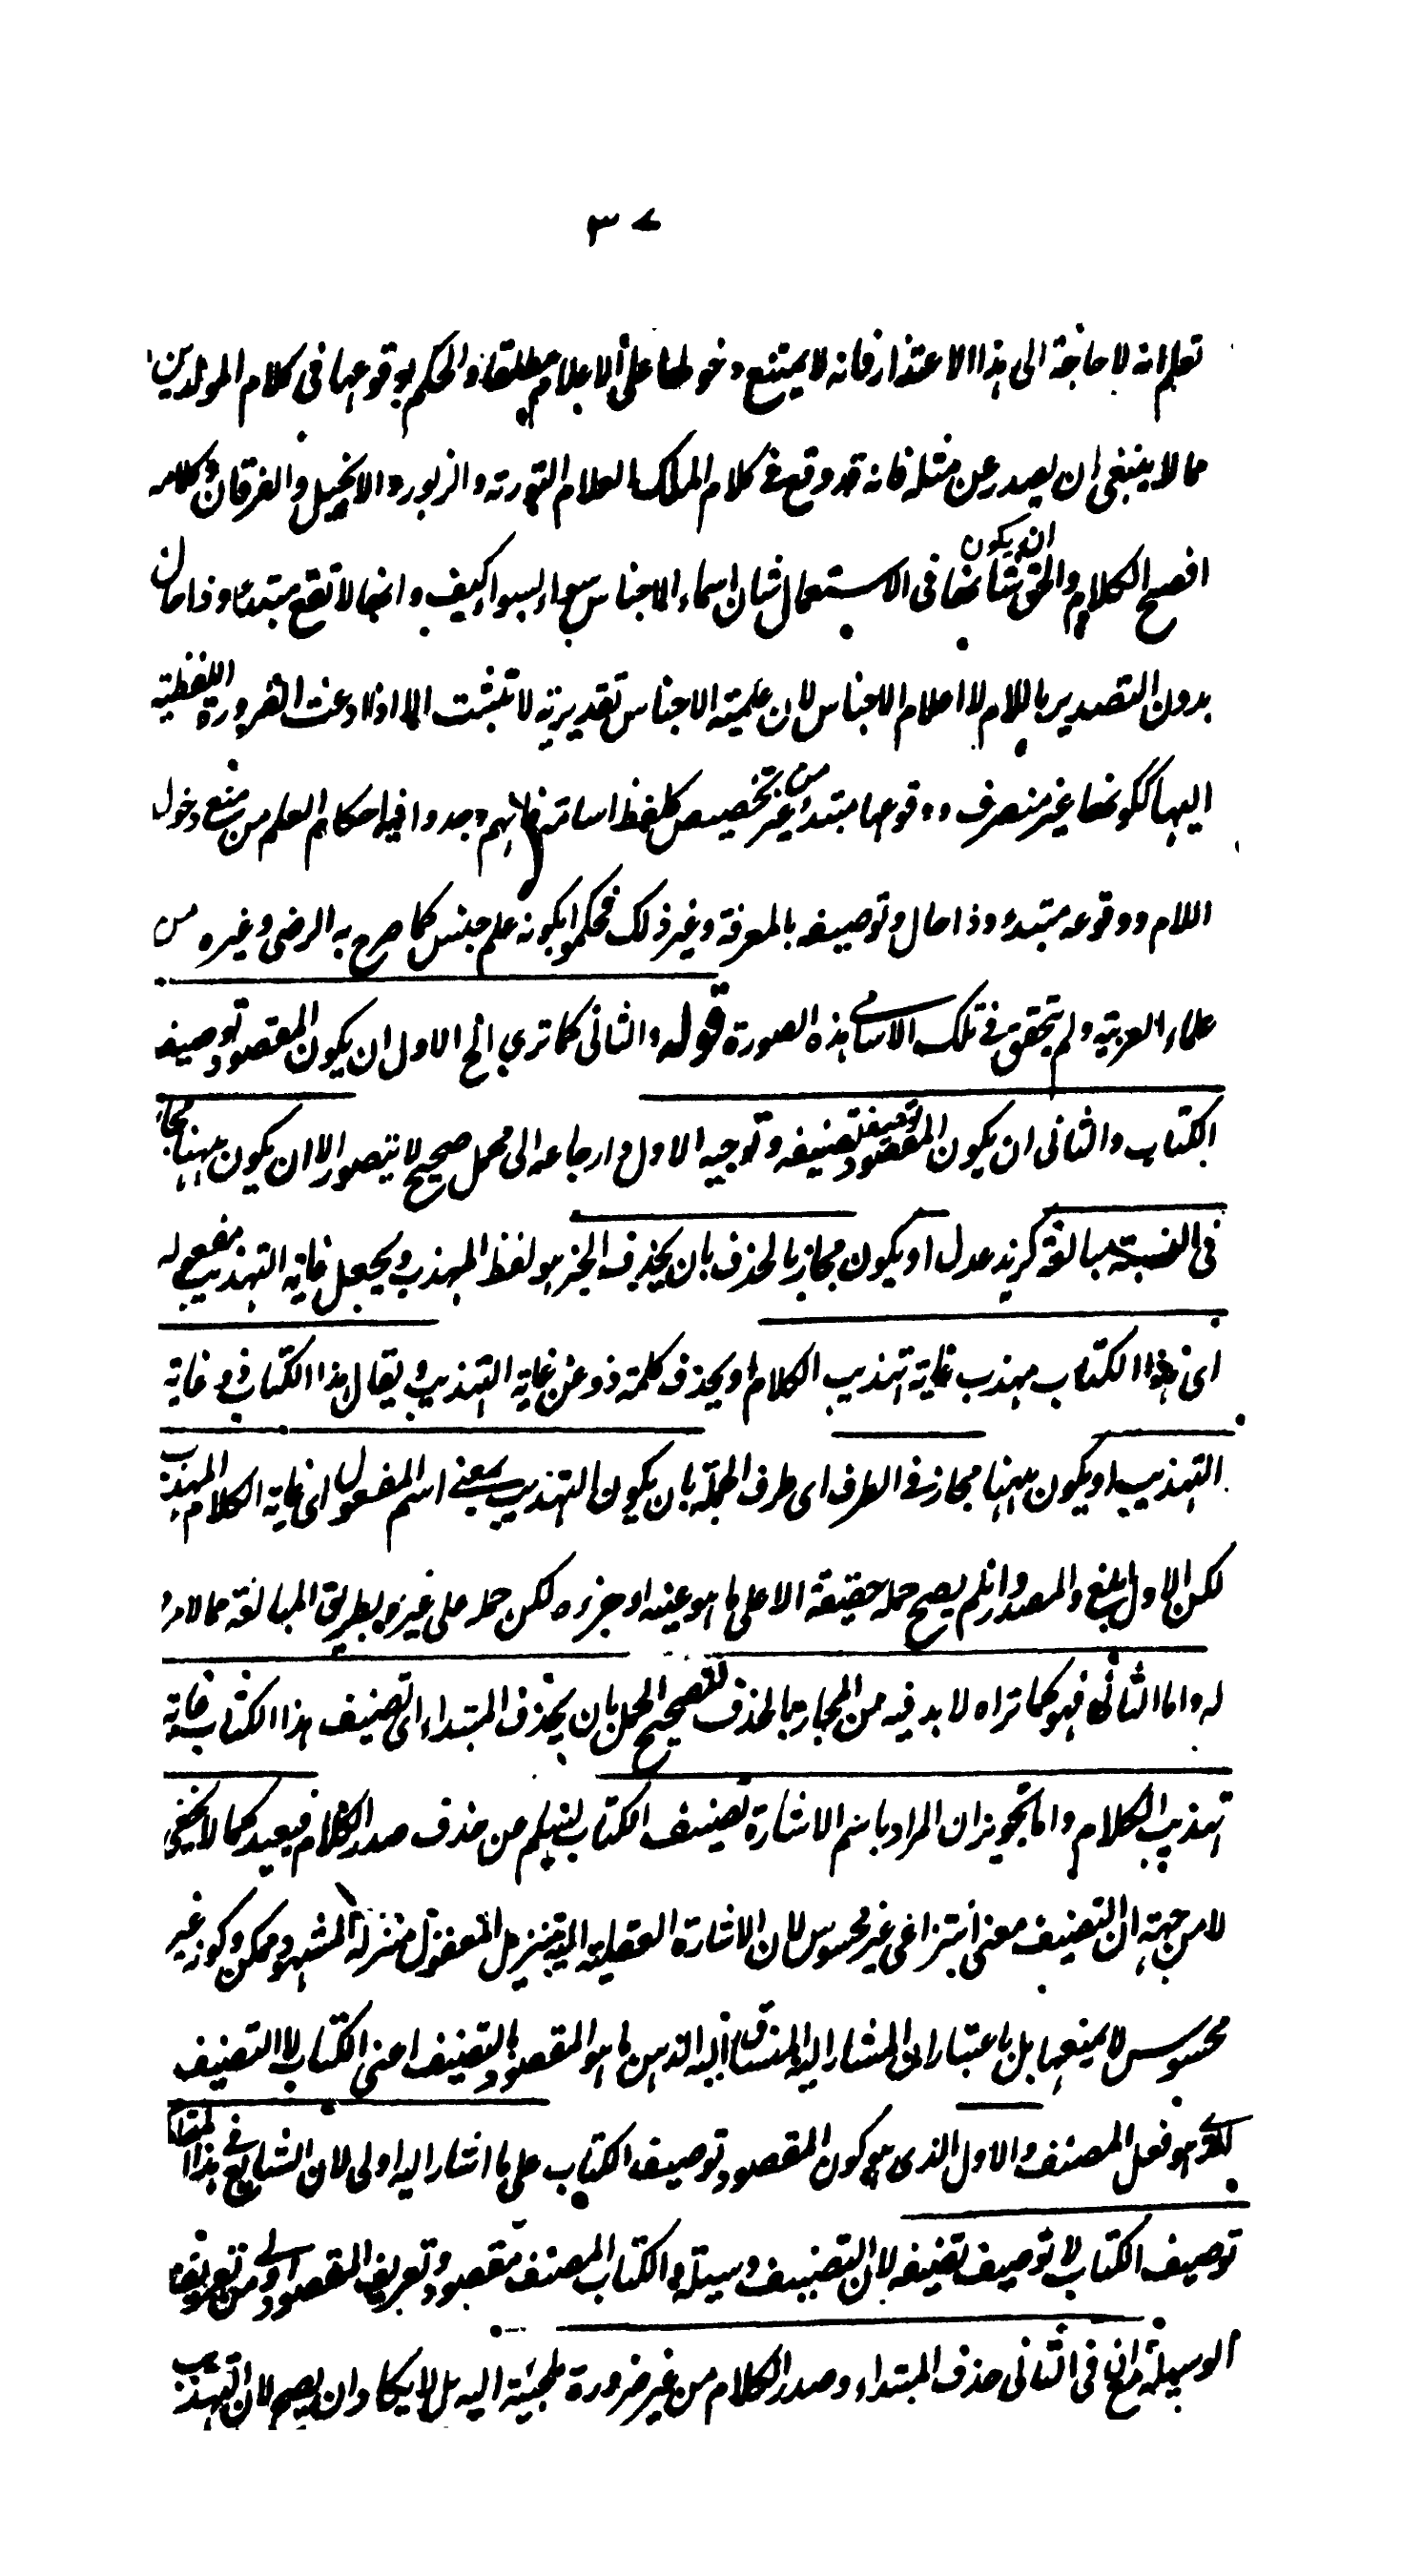 ٣٧
تعلم انه لا حاجة الى هذا الاعتذار فانه لا يمتنع دخولها على الاعلام مطلقا والحكم بوقوعها فى كلام المولدين
مما لا ينبغى ان يصدر عن مثله فانه قد وقع فى كلام الملك العلام التورته والزبور والانجيل والفرقان وكلامه
افصح الكلام والحق ان يكون شانها فى الاستعمال شان اسماء الاجناس سواء بسواء كيف وانها لا تقع مبتدء وذا حال
بدون التصدير باللام لا اعلام الاجناس لان علمية الاجناس تقديرية لا تثبت الا اذا دعت الضرورة اللفظية
اليها ككونها غير منصرف ووقوعها مبتدء من غير تخصيص كلفظ اسامة فانهم وجدوا فيها احكام العلم من منع دخول
اللام ووقوعه مبتدء وذا حال وتوصيفه بالمعرفة وغير ذلك فحكموا بكونه علم جنس كما صرح به الرضى وغيره من
علماء العربية ولم يتحقق فى تلك الاسامى هذه الصورة قوله والثانى كما ترى الخ الاول ان يكون المقصود توصيف
الكتاب والثانى ان يكون المقصود توصيف تصنيفه وتوجيه الاول وارجاعه الى محمل صحيح لا يتصور الا ان يكون ههنا مجاز
فى النسبة مبالغة كزيد عدل او يكون مجاز بالحذف بان يحذف الخبر هو لفظ المهذب ويجعل غاية التهذيب مفعوله
اى هذا الكتاب مهذب غاية تهذيب الكلام او يحذف كلمة ذو عن غاية التهذيب ويقال هذا الكتاب ذو غاية
التهذيب او يكون ههنا مجاز فى الطرف اى طرف الجملة بان يكون التهذيب بمعنى اسم المفعول اى غاية الكلام المهذب
لكن الاول ابلغ والمصدر وان لم يصح حمله حقيقة الا على ما هو عينه او جزءه لكن حمله على غيره بطريق المبالغة مما لا مرد
له واما الثانى فهو كما تراه لا بد فيه من المجاز بالحذف لتصحيح الحمل بان يحذف المبتداء اى تصنيف هذا الكتاب غاية
تهذيب الكلام واما تجويز ان المراد باسم الاشارة تصنيف الكتاب ليسلم من حذف صدر الكلام فبعيد كما لا يخفى
لا من جهة ان التصنيف معنى انتزاعى غير محسوس لان الاشارة العقلية اليه بتنزيل المعقول منزلة المشهود ممكن وكونه غير
محسوس لا يمنعها بل باعتبار ان المشار اليه المنساق اليه الذهن ما هو المقصود بالتصنيف اعنى الكتاب لا التصنيف
الذى هو فعل المصنف والاول الذى هو كون المقصود توصيف الكتاب على ما اشار اليه اولى لان الشايع فى هذا المقام
توصيف الكتاب لا توصيف تصنيفه لان التصنيف وسيلة والكتاب المصنف مقصود وتعريف المقصود اولى من تعريف
الوسيلة مع ان فى الثانى حذف المبتداء وصدر الكلام من غير ضرورة ملجئة اليه بل لا يكاد ان يصح لان التهذيب